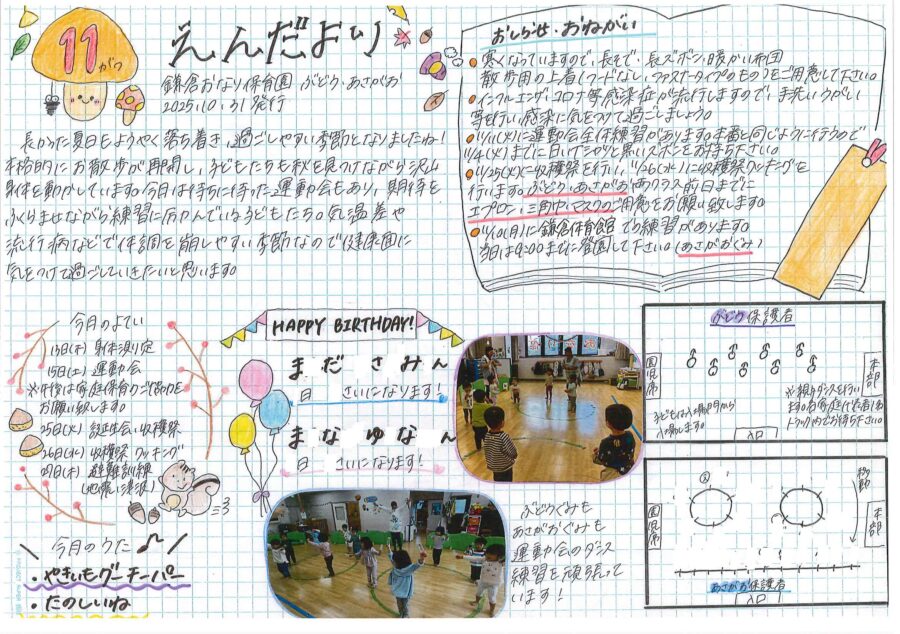 11がつ
えんだより
鎌倉おなり保育園 ぶどう・あさがお
2025.10.31発行
長かった夏日もようやく落ち着き、過ごしやすい季節となりましたね!
本格的にお散歩が再開し、子どもたちも秋を見つけながら沢山
身体を動かしています。今月は待ちに待った運動会もあり、期待を
ふくらませながら練習に励んでいる子どもたち。気温差や
流行病などで体調を崩しやすい季節なので健康面に
気をつけて過ごしていきたいと思います。
おしらせ・おねがい
寒くなっていますので、長そで・長ズボン・暖かい布団
散歩用の上着(フードなし、ファスナータイプのもの)をご用意して下さい。
インフルエンザ・コロナ等感染症が流行しますので手洗いうがい
等を行い感染に気をつけて過ごしましょう。
(火)に運動会全体練習があります。本番と同じように行うので
(火)までに白いTシャツと黒いズボンをお持ち下さい。
11/25(火)に収穫祭を行い、11/26(水)に収穫祭クッキングを
行います。ぶどう・あさがお両クラス前日までに
エプロン、三角巾、マスクのご用意をお願い致します。
11/10(月)に鎌倉体育館で練習があります。
当日は9:00までに登園して下さい。(あさがおぐみ)
今月のよてい
13日(木) 身体測定
15日(土) 運動会
※午後は家庭保育のご協力を
お願い致します。
25日(火) 誕生会・収穫祭
26日(水) 収穫祭クッキング
避難訓練
HAPPY BIRTHDAY!
日 さいになります!
日 さいになります!
今月のうた
・やきいもグーチーパー
・たのしいね
ぶどうぐみも
あさがおぐみも
運動会のダンス
練習を頑張って
います!
ぶどう保護者
園児席
本部
子どもは入場門から
入場します。
※親子ダンスを行い
トラック内でお待ち下さい。
入口
移動
園児席
本部
あさがお保護者
入口